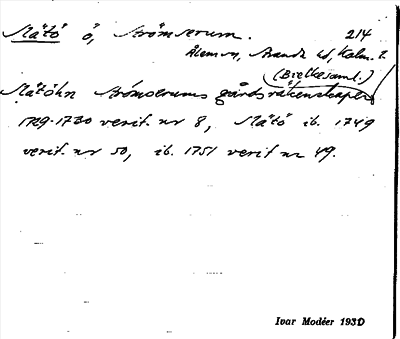 Måtö ö, Strömserum. 214
Ålem sn, Stranda hd, Kalm. l.
(Bielkesaml.)
Måtöhn Strömserums gårdsräkenskaper
1729-1730 verif. nr 8, Måtö ib. 1749
verif. nr 50, ib. 1751 verif nr 49.
Ivar Modéer 193